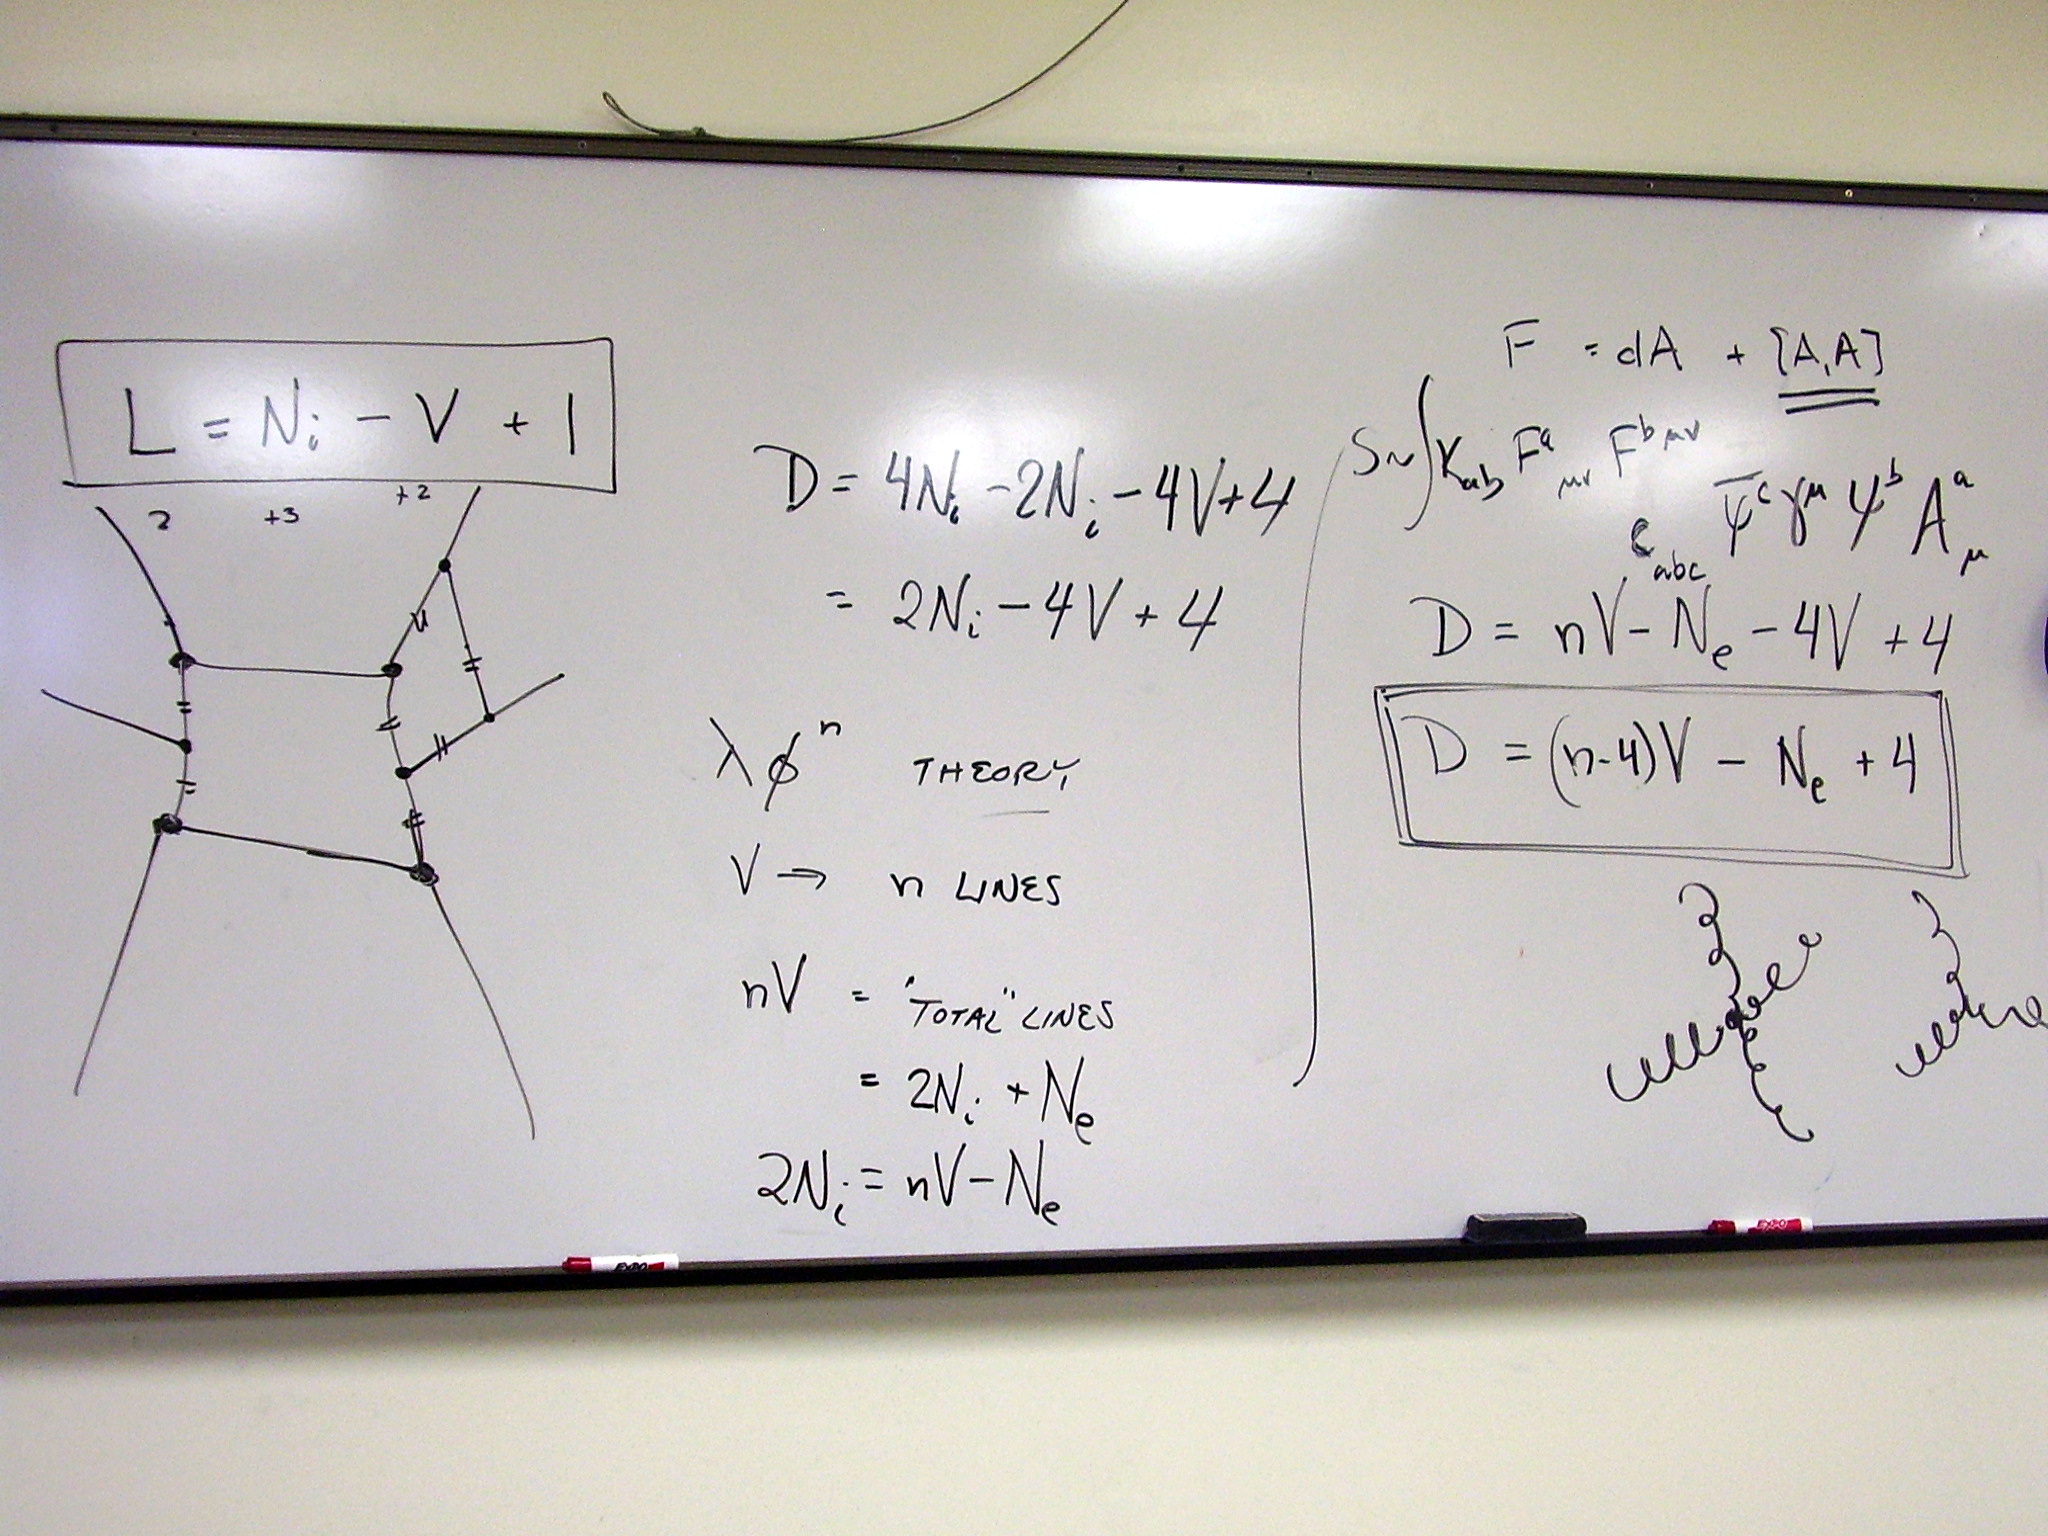 L = Nᵢ - V + 1
2 +3 +2
D = 4Nᵢ - 2Nᵢ - 4V + 4
= 2Nᵢ - 4V + 4
λϕⁿ THEORY
V → n LINES
nV = "TOTAL" LINES
= 2Nᵢ + Nₑ
2Nᵢ = nV - Nₑ
F = dA + [A,A]
S ~ ∫ K_ab F^a_μν F^bμν
e_abc ψ̄^c γ^μ ψ^b A^a_μ
D = nV - Nₑ - 4V + 4
D = (n-4)V - Nₑ + 4
EXPO
EXPO